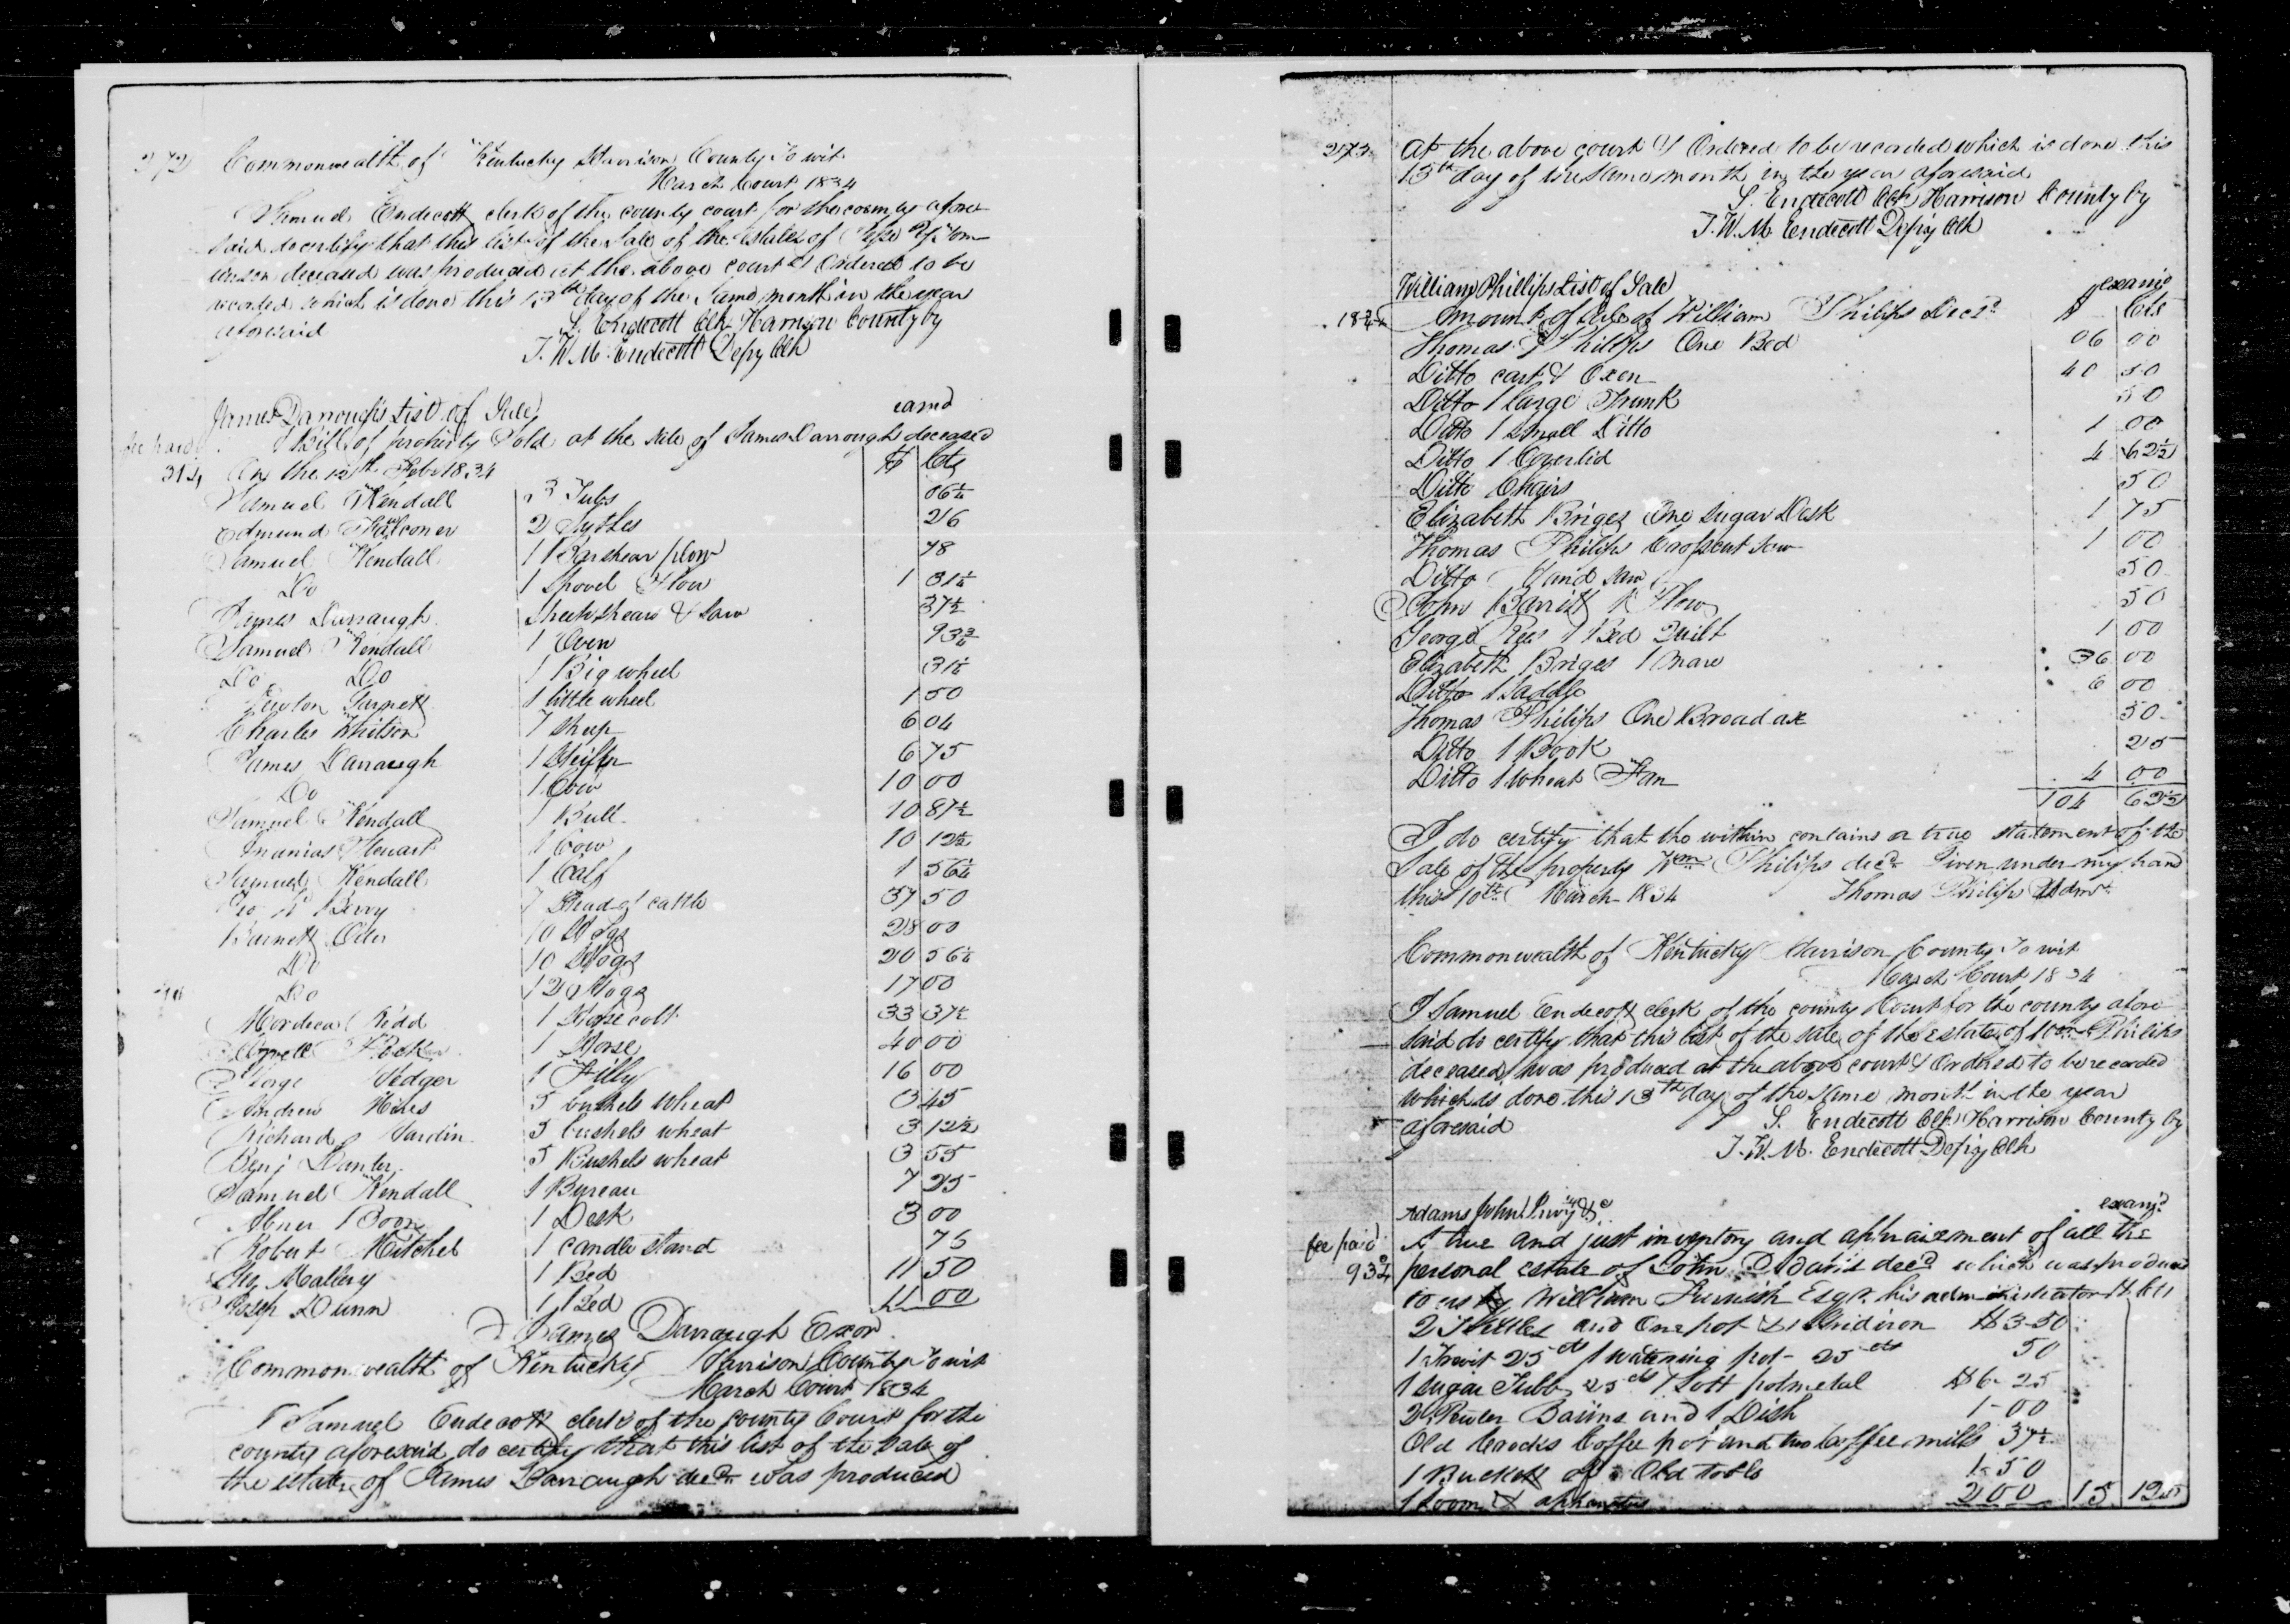 272 Commonwealth of Kentucky Harrison County To wit
March Court 1834
Samuel Endecott clerk of the county court for the county afore
said do certify that this list of the Sale of the Estate of
deceased was produced at the above court & Ordered to be
recorded which is done this 13th day of the Same month in the year
aforesaid
S. Endecott Clk Harrison County by
T. W. M. Endecott Depty Clk
James Darroughs List of Sale
examd
fee paid Bill of property Sold at the sale of James Darrough deceased
31¼ On the 12th Feby 1834 $ Cts
Samuel Kendall 3 Tubs 06¼
Edmund Falconer 2 Sythes 26
Samuel Kendall 1 Barshear plow 78
Do 1 Shovel Plow 1 31¼
James Darraugh Sheepshears & Saw 37½
Samuel Kendall 1 Oven 93¾
Do Do 1 Big wheel 31¼
Newton Garnett 1 little wheel 1 50
Charles Whitson 7 Sheep 6 04
James Darraugh 1 Heifer 6 75
Do 1 Cow 10 00
Samuel Kendall 1 Bull 10 87½
Ananias Stewart 1 Cow 10 12½
Samuel Kendall 1 Calf 1 56¼
Berry 7 Head of cattle 37 50
Barnett Oder 10 Hogs 28 00
Do 10 Hogs 20 56¼
Do 12 Hogs 17 00
Mordecai Kidd 1 Horse colt 33 37½
1 Horse 40 00
George Vedger 1 Filly 16 00
Andrew Hiles 5 bushels wheat 3 45
Richard Jardin 5 bushels wheat 3 12½
Benj Danley 5 Bushels wheat 3 55
Samuel Kendall 1 Bureau 7 25
Abner Boon 1 Desk 3 00
Robert Mitchel 1 candle stand 75
Mallery 1 Bed 11 50
Joseph Dunn 1 Bed 11 00
James Darraugh Exor
Commonwealth of Kentucky Harrison County To wit
March Court 1834
I Samuel Endecott clerk of the county Court for the
county aforesaid do certify that this list of the Sale of
the estate of James Darraugh decd was produced
273 at the above court & Ordered to be recorded which is done this
13th day of the same month in the year aforesaid
S. Endecott Clk Harrison County by
T. W. M. Endecott Depty Clk
William Phillips List of Sale
examd
Amount of Sale of William Philips Decd $ Cts
Thomas Philips One Bed 06 00
Ditto cart & Oxen 40 50
Ditto 1 large Trunk 50
Ditto 1 small Ditto 1 00
Ditto 1 Coverlid 4 62½
Ditto Chairs 50
Elizabeth Briges One Sugar Desk 1 75
Thomas Philips Crosscut Saw 1 00
Ditto Hand saw 50
John Barrett Plow 50
George Rees 1 Bed Quilt 1 00
Elizabeth Briges 1 Mare 36 00
Ditto 1 Saddle 6 00
Thomas Philips One Broad ax 50
Ditto 1 Book 25
Ditto 1 Wheat Fan 4 00
104 62½
I do certify that the within contains a true statement of the
Sale of the property Wm Philips decd Given under my hand
this 10th March 1834 Thomas Philips Admr
Commonwealth of Kentucky Harrison County To wit
March Court 1834
I Samuel Endecott clerk of the county Court for the county afore
said do certify that this list of the sale of the estate of Wm Philips
deceased was produced at the above court & Ordered to be recorded
which is done this 13th day of the same month in the year
aforesaid
S. Endecott Clk Harrison County by
T. W. M. Endecott Depty Clk
Adams John Invy &c
examd
fee paid A true and just inventory and appraisement of all the
93¾ personal estate of John Adams decd which was produced
to us by William Furnish Esqr. his administrator $ Cts
2 Kettles and One pot & 1 Gridiron $3-50
1 Trevit 25 cts 1 watering pot - 25 cts 50
1 Sugar Tubb 25 cts 1 Lott potmetal $6-25
2 Pewter Basins and 1 Dish 1-00
Old Crocks Coffee pot and two Coffee mills 37½
1 Buckett of Old tools 1-50
1 Loom & aphanatus 2 00 15 12½